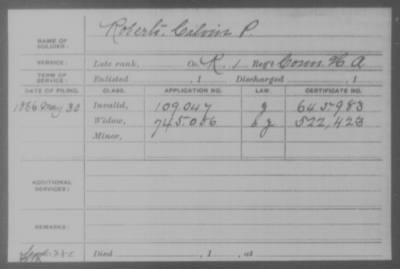 NAME OF SOLDIER: Roberts, Calvin P.
SERVICE: Late rank, Co. K, 1 Reg't Conn H A
TERM OF SERVICE: Enlisted , 1 Discharged , 1
DATE OF FILING. CLASS. APPLICATION NO. LAW. CERTIFICATE NO.
1866 May 30 Invalid, 109.047 645.983
Widow, 745.086 522,423
Minor,
ADDITIONAL SERVICES:
REMARKS:
Died , 1 , at